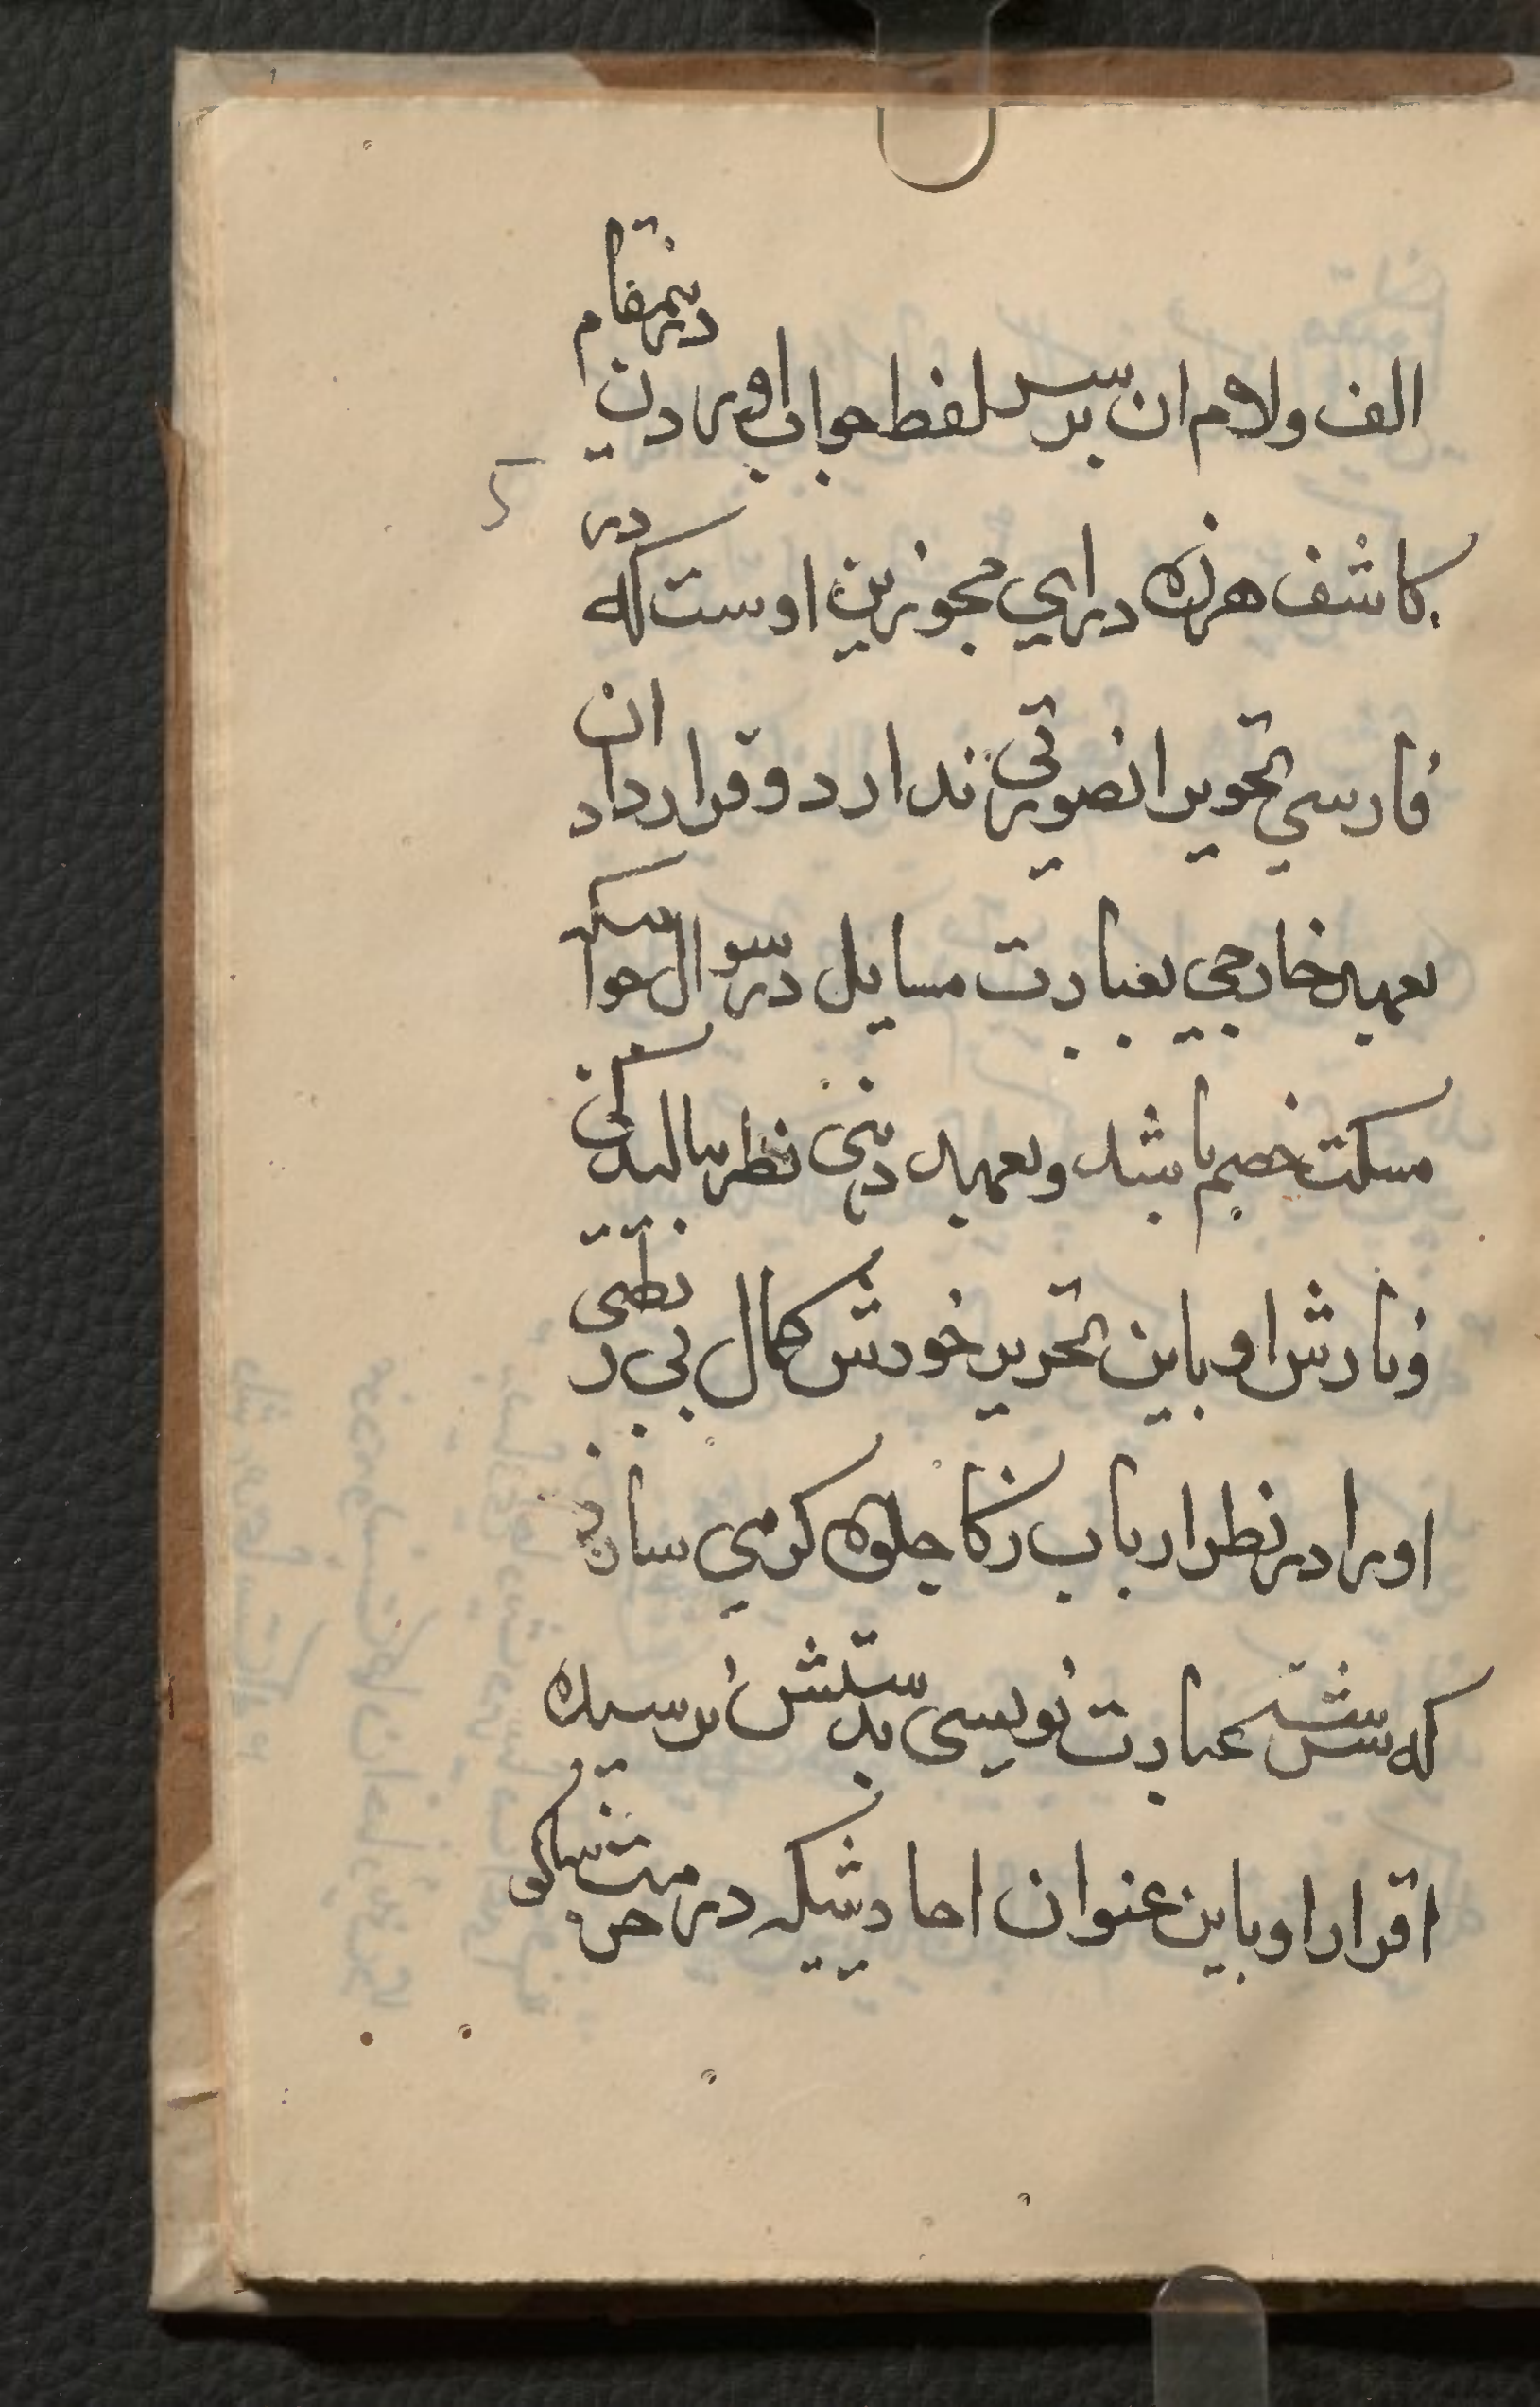 الف ولام ان بر سر لفظ جواب اوردن درینمقام
کاشف هرزه درای مجوزین اوست که در
فارسی تحویر انصورتی ندارد و قرارداد ان
بعهد خارجی بعبارت مسایل در سوال جوا
مسکت خصم باشد و بعهد ذهنی نظر
اوباین تحریر خودش کمال بی ر
اورا در نظر ارباب زکا جلوه کر می سازد
که عبارت نویسی بدستش نرسیده
اقرار او باین عنوان احادیثیکه در مشکو